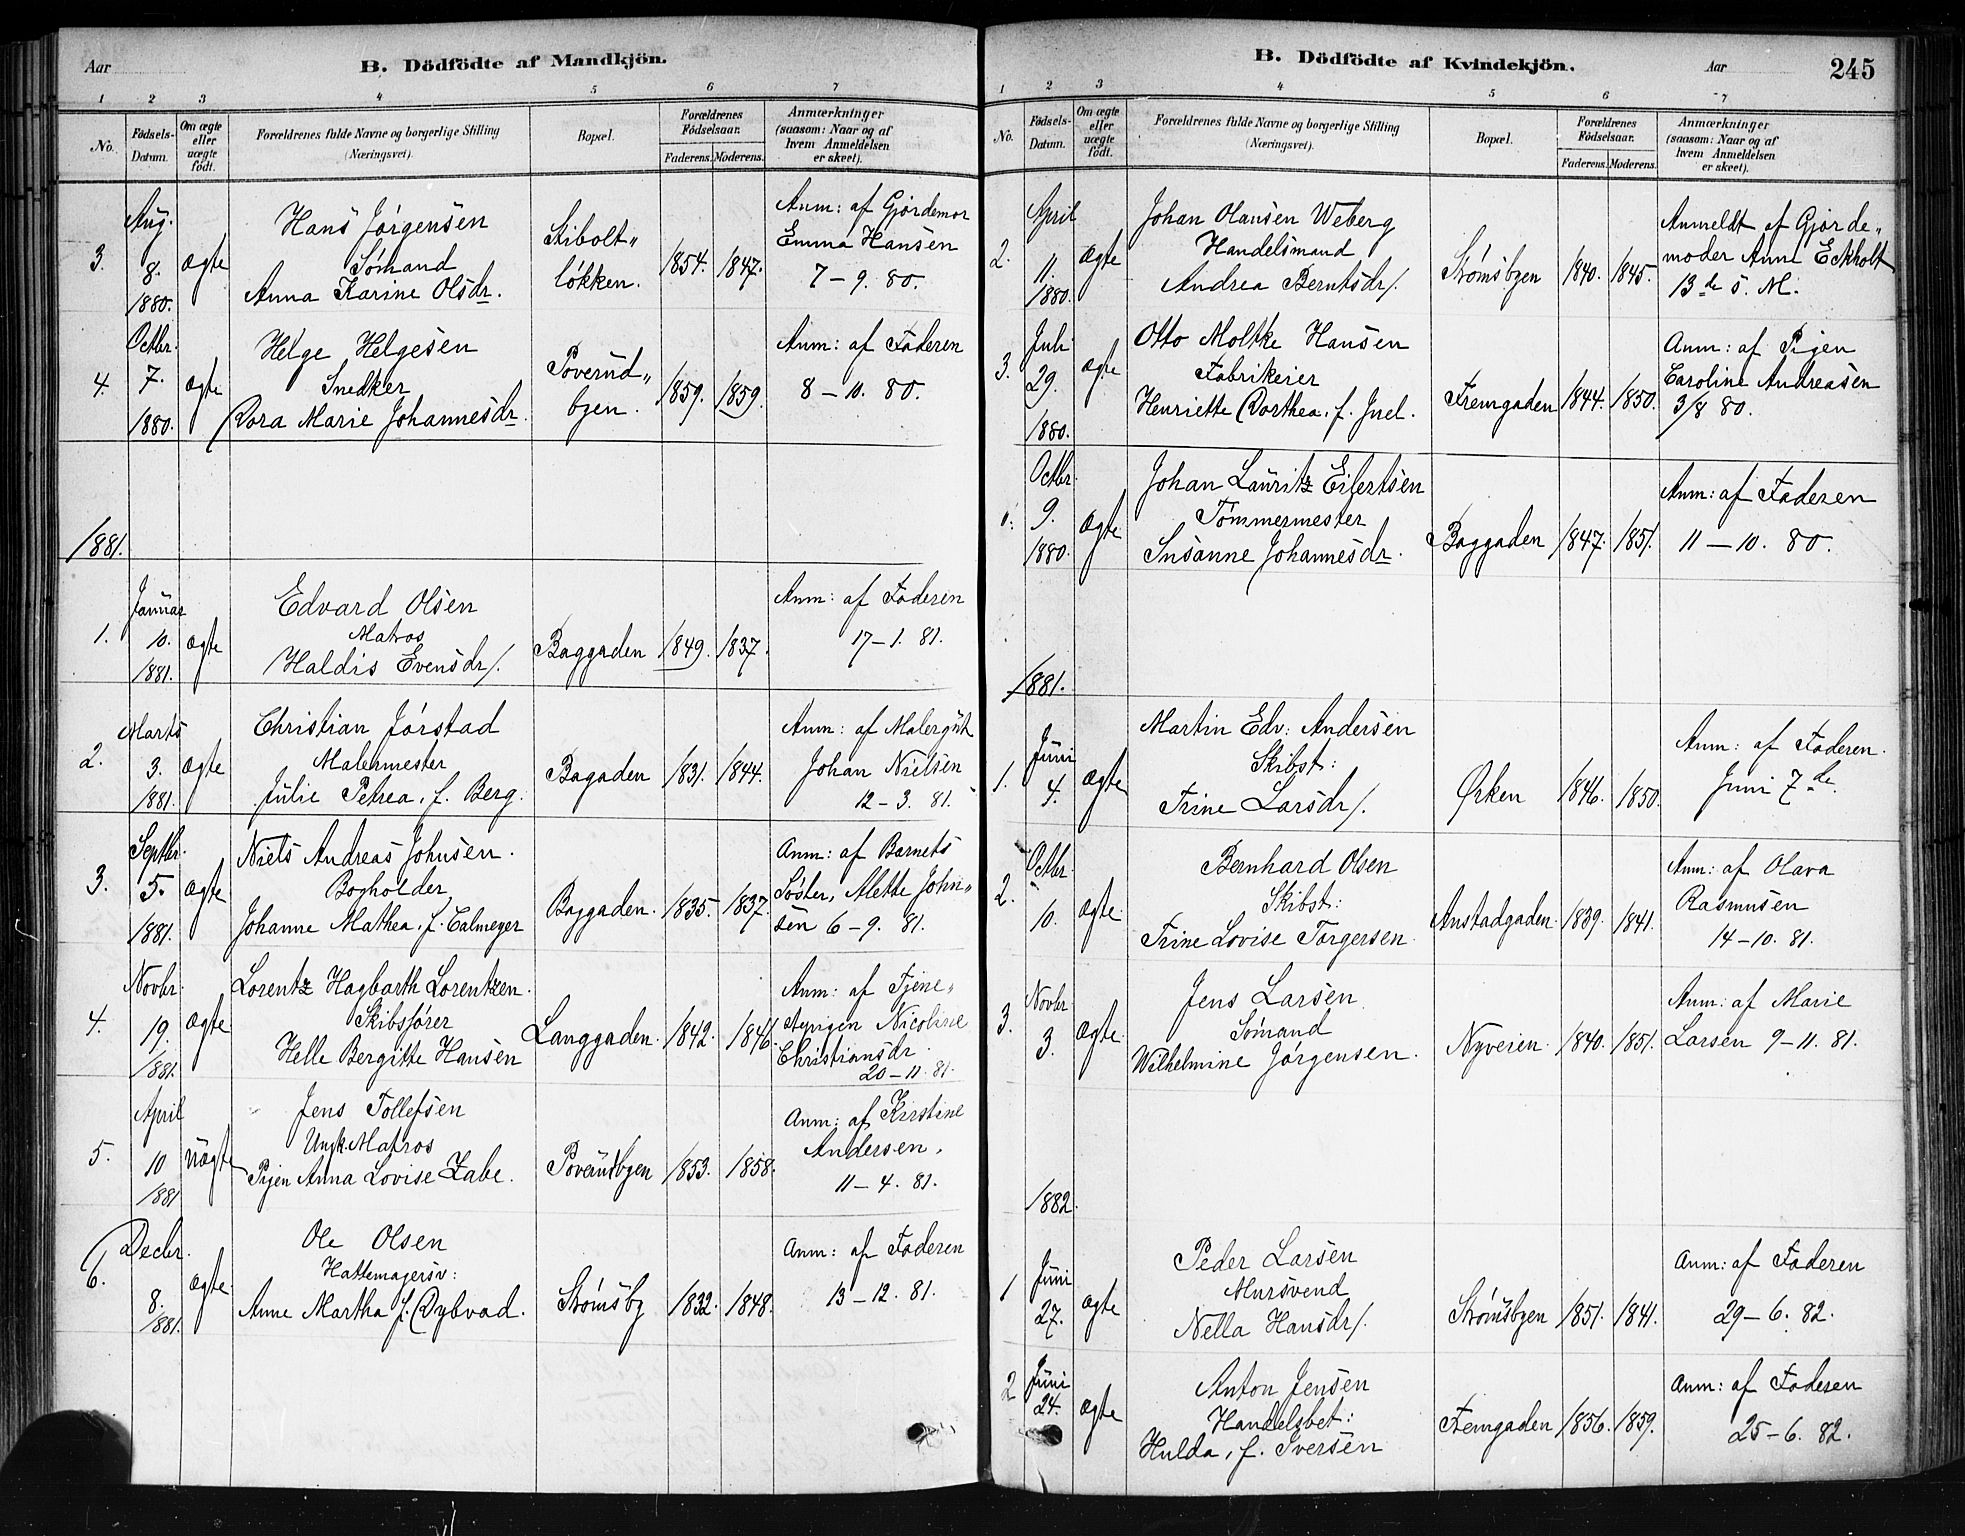 Aar
B. Dödfödte af Mandkjön.
1 2 3 4 5 6 7
No.
Födsels-Datum.
Om ægte eller uægte födt.
Forældrenes fulde Navne og borgerlige Stilling
(Næringsvei).
Bopæl.
Forældrenes Födselsaar.
Faderens. Moderens.
Anmærkninger
(saasom: Naar og af
hvem Anmeldelsen
er skeet).
3. Aug. 8. 1880. ægte
Hans Jörgensen
Sömand
Anna Karine Olsdr.
Stibolt„
lökken.
1854. 1847.
Anm: af Gjordemor
Emma Hansen
7 – 9. 80.
4. Octbr. 7. 1880. ægte
Helge Helgesen
Snedker
Dora Marie Johannesdr.
Poverud„
byen.
1859. 1859.
Anm: af Faderen
8 – 10. 80.
1881.
1. Januar 10. 1881. ægte
Edvard Olsen
Matros
Haldis Evensdr/.
Baggaden
1849. 1837.
Anm: af Faderen
17 – 1. 81.
2. Marts 3. 1881. ægte
Christian Jörstad
Malermester
Julie Petrea, f. Berg.
Bagaden
1831. 1844.
Anm: af Malergut
Johan Nielsen
12 – 3. 81.
3. Septbr. 5. 1881. ægte
Niels Andreas Johnsen.
Bogholder
Johanne Mathea, f. Calmeyer
Baggaden.
1835. 1837.
Anm: af Barnets
Söster, Alette John„
sen 6 – 9. 81.
4. Novbr. 19. 1881. ægte
Lorentz Hagbarth Lorentzen.
Skibsförer
Helle Bergitte Hansen
Langgaden.
1842. 1846.
Anm: af Tjene„
stepigen Nicoline
Christiansdr.
20 – 11. 81.
5. April 10 1881 uægte
Jens Tollefsen
Ungk. Matros
Pigen Anna Lovise Zabe.
Poverudbyen
1853. 1858.
Anm: af Kirstine
Andersen.
11 – 4. 81.
6. Decbr. 8. 1881. ægte
Ole Olsen
Hattemagersv:
Anne Martha f. Dybvad.
Strömsby
1832. 1848.
Anm: af Faderen
13 – 12. 81.
B. Dödfödte af Kvindekjön.
Aar
245
1 2 3 4 5 6 7
No.
Födsels-Datum.
Om ægte eller uægte födt.
Forældrenes fulde Navne og borgerlige Stilling
(Næringsvei).
Bopæl.
Forældrenes Födselsaar.
Faderens. Moderens.
Anmærkninger
(saasom: Naar og af
hvem Anmeldelsen
er skeet).
2. April 11. 1880. ægte
Johan Olausen Weberg
Handelsmand
Andrea Berntsdr/.
Strömsbyen
1840. 1845.
Anmeldt af Gjorde„
moder Anne Eckholt
13de s. M.
3. Juli 29. 1880. ægte
Otto Moltke Hansen
Fabrikeier
Henriette Dorthea, f. Juel.
Fremgaden
1844. 1850.
Anm: af Pigen
Caroline Andreasen
3/8 80.
Octbr. 9. 1880. ægte
Johan Lauritz Eilertsen
Tömmermester
Susanne Johannesdr.
Baggaden
1847. 1851.
Anm: af Faderen
11 – 10. 80.
1881.
1. Juni 4. ægte
Martin Edv: Andersen
Skibst:
Trine Larsdr/.
Ørken
1846. 1850.
Anm: af Faderen.
Juni 7de.
2. Octbr. 10. ægte
Bernhard Olsen
Skibst:
Trine Lovise Torgersen.
Anstadgaden.
1839. 1841.
Anm: af Olava
Rasmusen
14 – 10. 81.
3. Novbr 3. ægte
Jens Larsen
Sömand
Wilhelmine Jörgensen.
Nyveien.
1840. 1851.
Anm: af Marie
Larsen 9 – 11. 81.
1882.
1 Juni 27. ægte
Peder Larsen
Mursvend
Nella Hansdr/.
Strömsbyen
1851. 1841.
Anm: af Faderen
29 – 6. 82.
2 Juni 24. ægte
Anton Jensen
Handelsbet:
Hulda, f. Iversen
Fremgaden
1856. 1859.
Anm: af Faderen
25 – 6. 82.